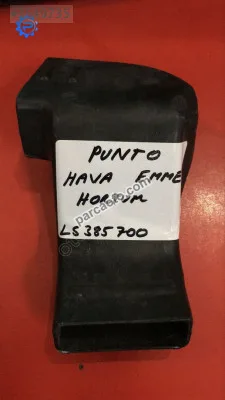 PUNTO
HAVA EMME
HORTUM
LS 385 700
parcaoto.com